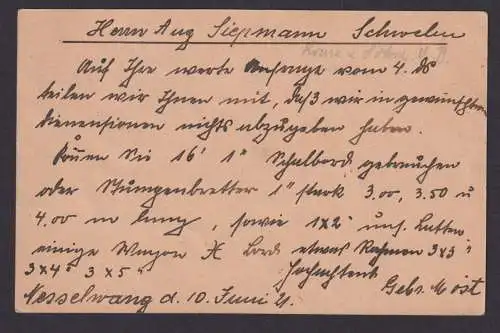 Herrn Aug Siepmann Schwelm
Auf Ihre werte Anfrage vom 4. ds
teilen wir Ihnen mit, daß wir in gewünschten
dimensionen nichts abzugeben haben.
Können Sie 16' 1" Schalbord gebrauchen
oder Stumpenbretter 1" stark 3.00, 3.50 u
4.00 m lang, sowie 1x2" Latten
einige Wagon Bords etwas Rahmen 3x3"
3x4" 3x5" Hochachtend
Gebr Möst
Nesselwang d. 10 Juni 21.